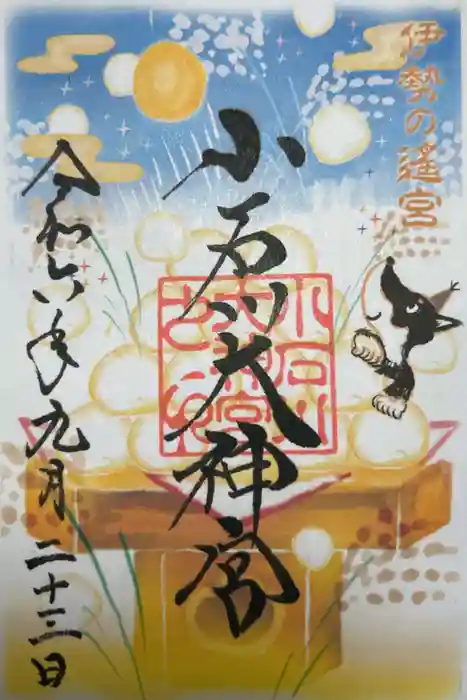 伊勢の遥宮
小石川大神宮
令和六年九月二十三日